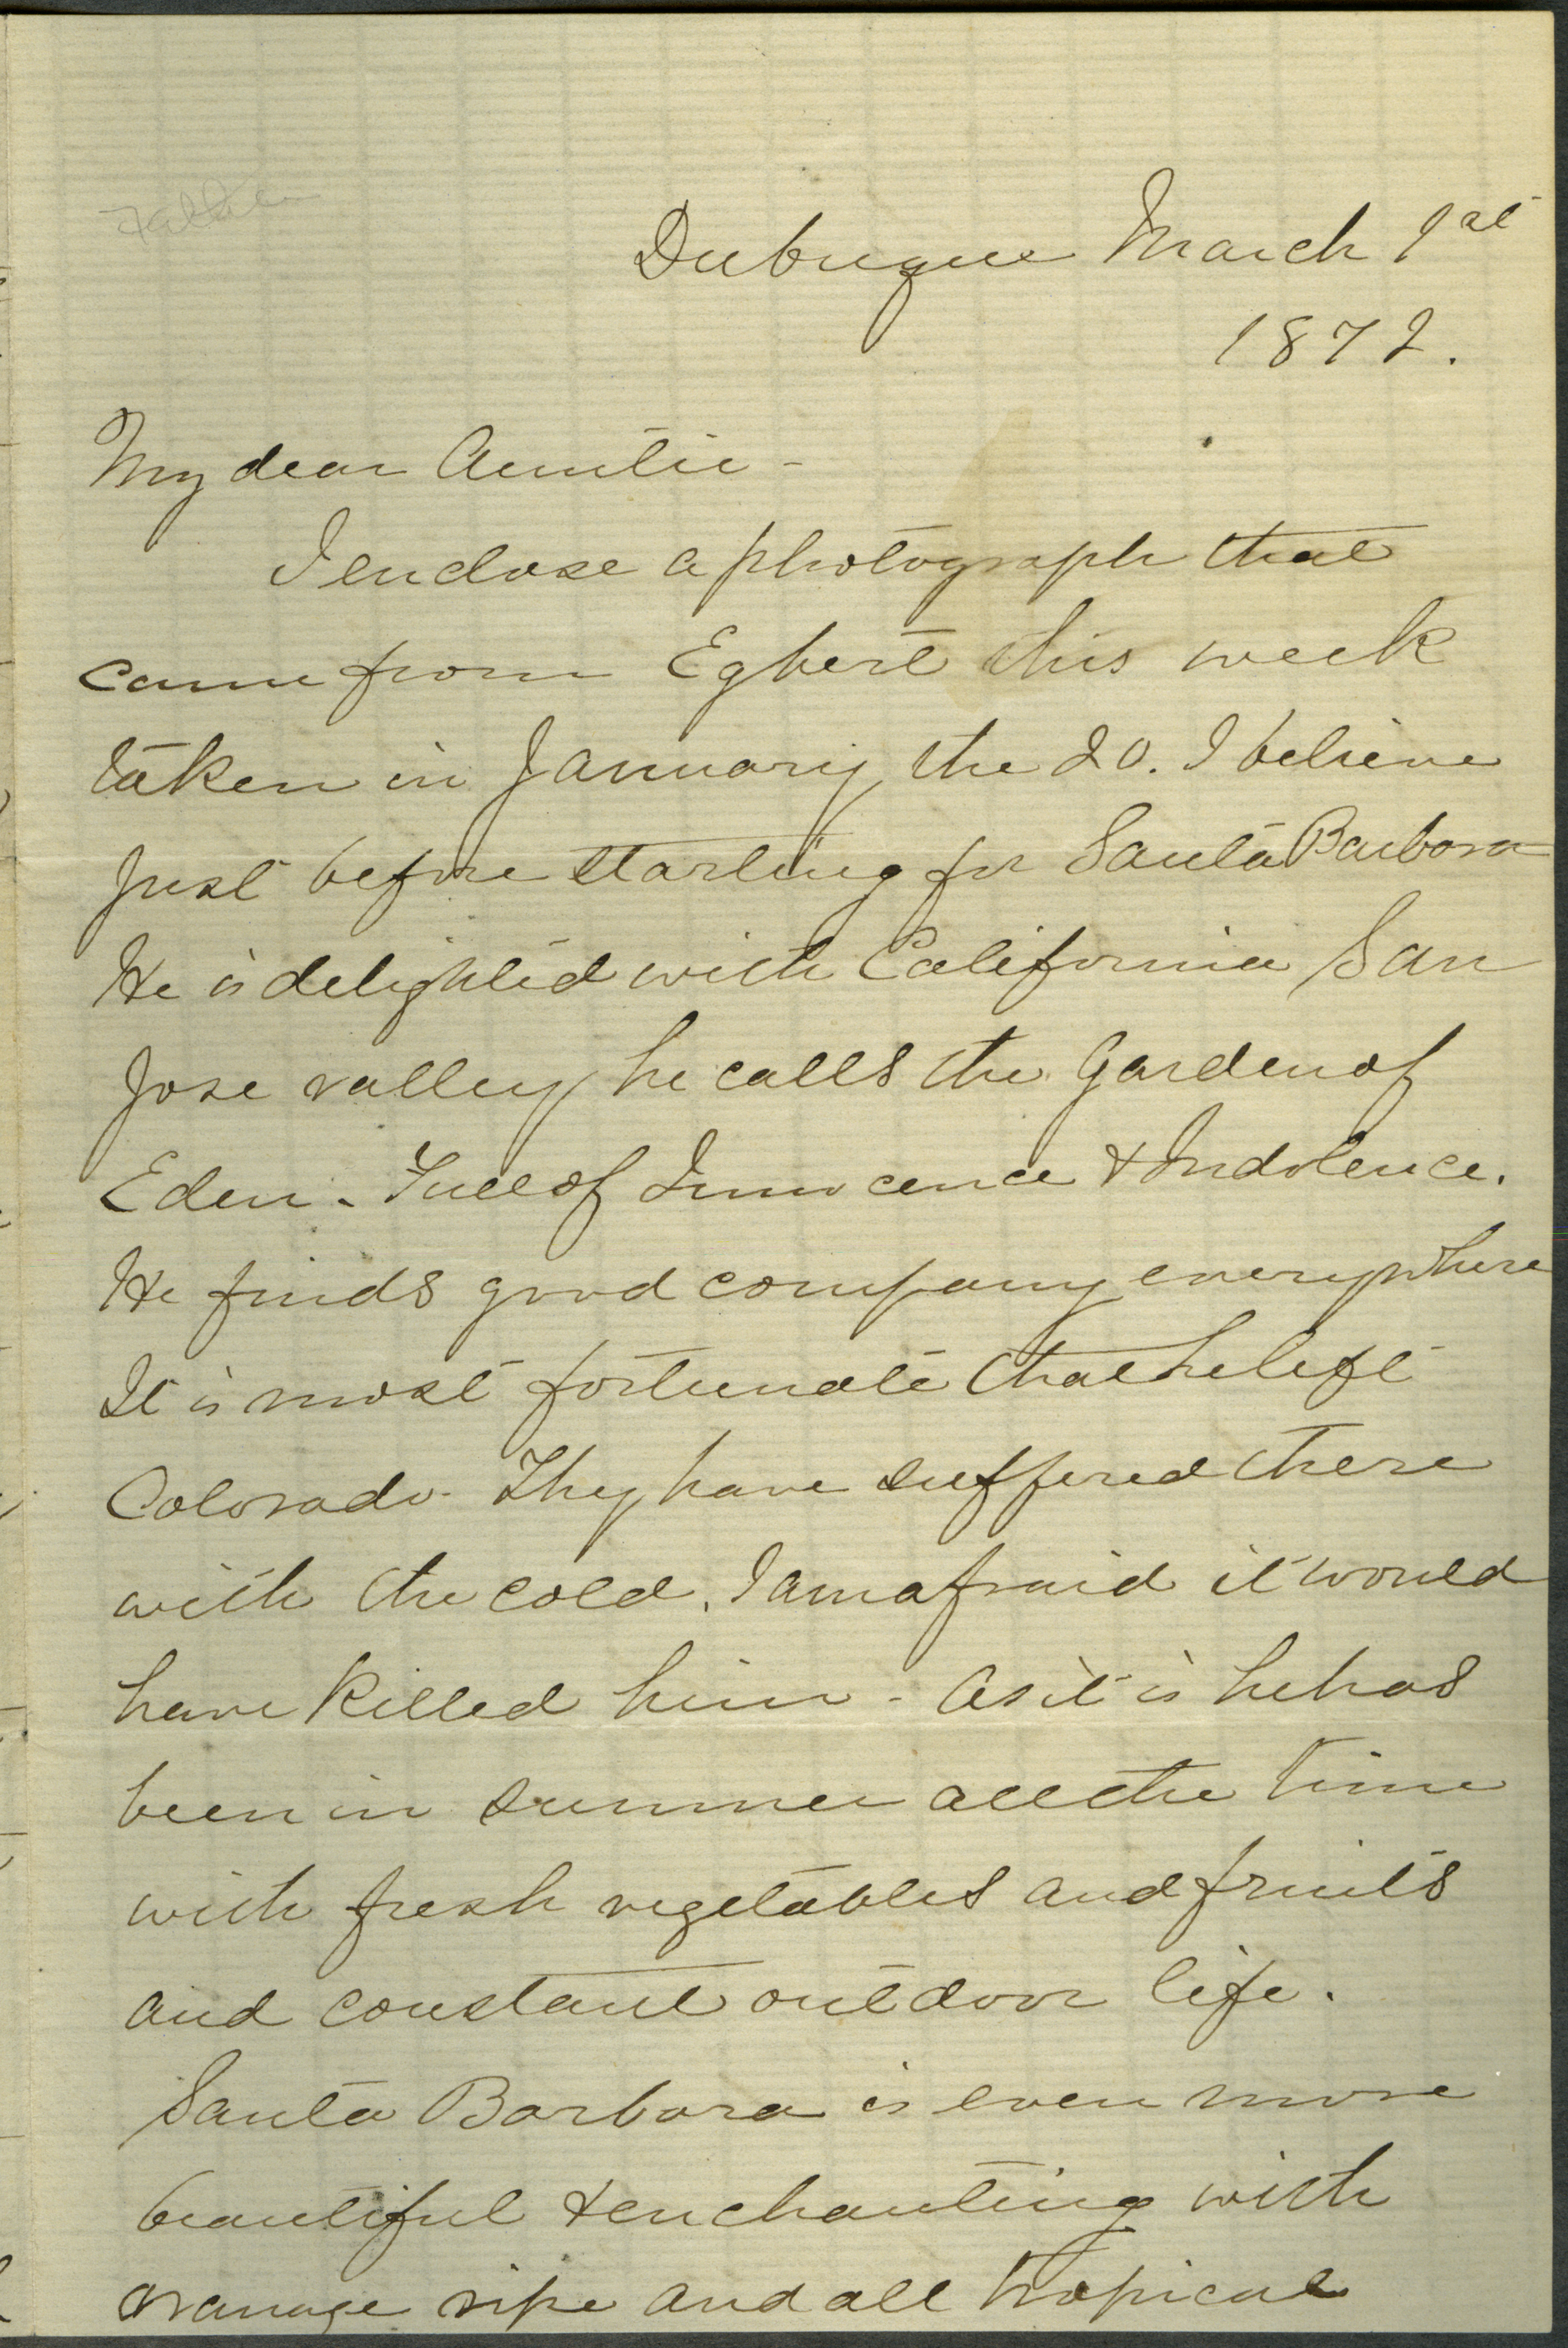 Dubuque March 1st
1872.
My dear Auntie -
I enclose a photograph that
came from Egbert this week
taken in January the 20. I believe
just before starting for Santa Barbara
He is delighted with California San
Jose valley he calls the Garden of
Eden - Full of Innocence & Indolence.
He finds good company everywhere
It is most fortunate that he left
Colorado - They have suffered there
with the cold. I am afraid it would
have killed him - As it is he has
been in summer all the time
with fresh vegetables and fruits
and constant outdoor life.
Santa Barbara is even more
beautiful & enchanting with
orange ripe and all tropical